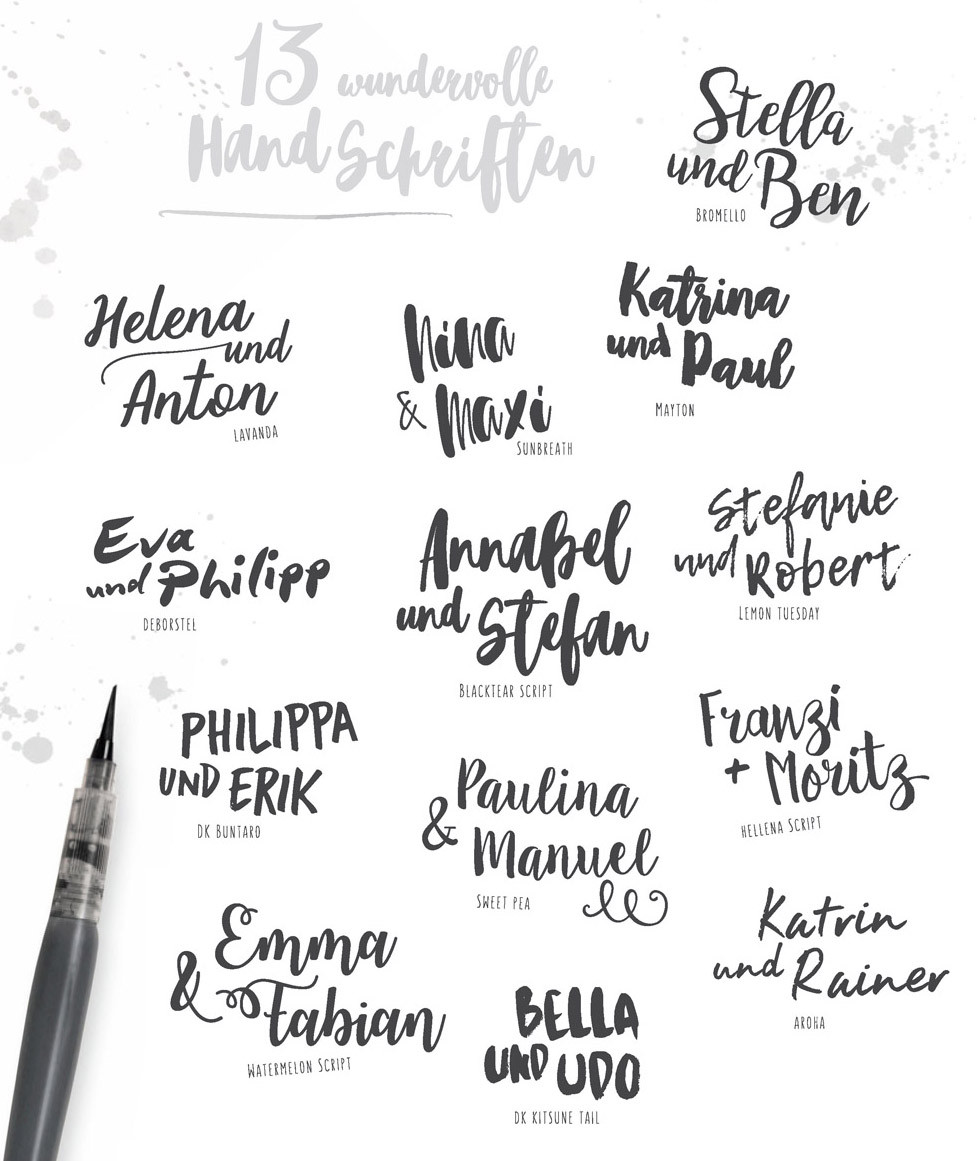 13 wundervolle
HandSchriften
Stella
und Ben
BROMELLO
Helena
und
Anton
LAVANDA
Nina
& Maxi
SUNBREATH
Katrina
und Paul
MAYTON
Eva
und Philipp
DEBORSTEL
Annabel
und Stefan
BLACKTEAR SCRIPT
Stefanie
und Robert
LEMON TUESDAY
PHILIPPA
UND ERIK
DK BUNTARO
Paulina
& Manuel
SWEET PEA
Franzi
+ Moritz
HELLENA SCRIPT
Emma
& Fabian
WATERMELON SCRIPT
BELLA
UND UDO
DK KITSUNE TAIL
Katrin
und Rainer
AROHA